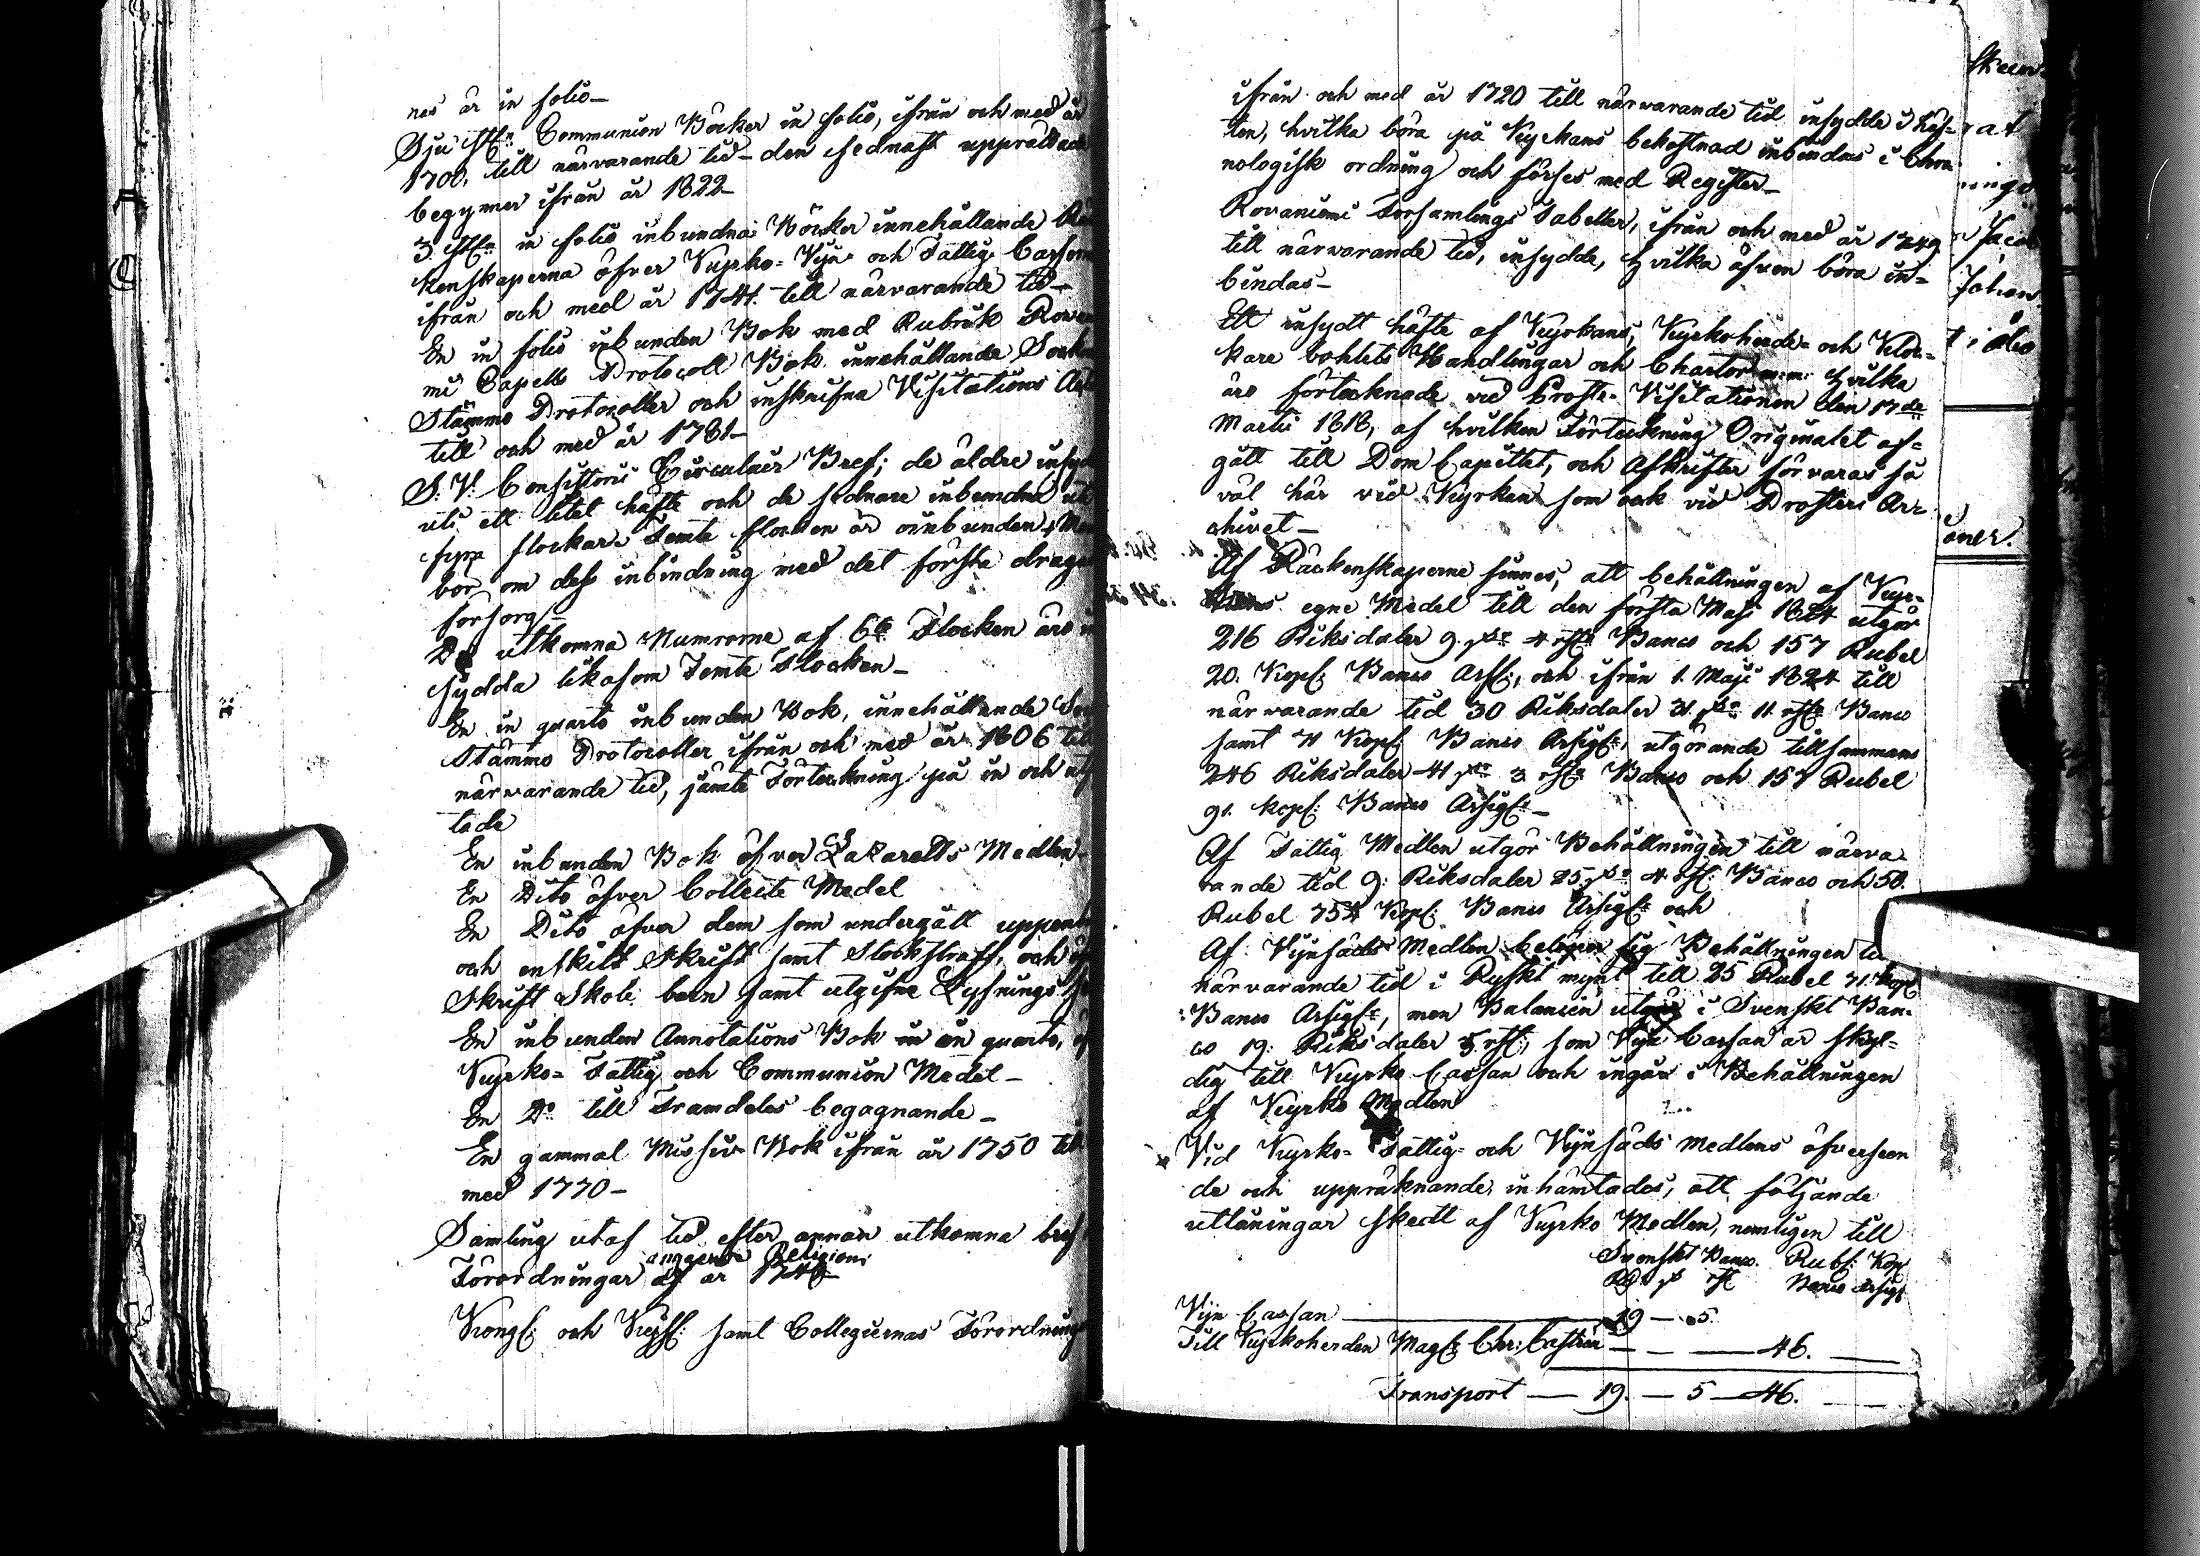 nes är in folio–
Sju st:n Communion Böcker in folio, ifrån och med år
1700, till närvarande tid – den sednast upprättade
begynner ifrån år 1822–
3 st:n in folio inbundna Böcker innehållande Rä
kenskaperna öfver Kyrko- Vijn- och Fattig Cassorne
ifrån och med år 1741. till närvarande tid–
En in folio inbunden Bok med Rubrik Rova
mi Capells Protocoll Bok innehållande Sockne
Stämmo Protocoller och inskrifna Visitations Acter
till och med år 1781–
S. V. Consistorii Circulair Bref; de äldre insyd
uti ett litet häfte och de sednare inbundna uti
fyra flockar. Femte flocken är oinbunden,
bör om dess inbindning med det första dragas
försorg–
De utkomna Numrorne af 6te Flocken äro in
sydda likasom Femte Flocken–
En in quarto inbunden Bok, innehållande Sock
Stämmo Protocoller ifrån och med år 1806 till
närvarande tid, jämte Förteckning på in och utfl
tade
En inbunden Bok öfver Lazaretts Medlen–
En Dito öfver Collecte Medel
En Dito öfver dem som undergått uppenb
och enskilt Skrift samt Stockstraff, och öf
Skrift Skole barn samt utgifne Lysnings
En inbunden Annotations Bok in quarto, öf
Kyrko- Fattig och Communion Medel–
En D:o till Framdeles begagnande–
En gammal Missiv Bok ifrån år 1750 till
med 1770–
Samling utaf tid efter annan utkomna bref
angående Religion:
Förordningar af år 174
Kongl: och Kejs: samt Collegiernas Förordninga
ifrån och med år 1720 till närvarande tid insydde i häf-
ten, hvilka böra på Kyrkans bekostnad inbindas i Chro
nologisk ordning och förses med Register–
Rovaniemi Församlings Tabeller, ifrån och med år 1749
till närvarande tid, insydde, hvilka äfven böra in-
bindas–
Ett insydt häfte af Kyrkans, Kyrkoherde- och Kloc-
kare bohlets Handlingar och Chartor m:m: hvilka
äro förtecknade vid Prosts- Visitationen den 17de
Martii 1818, af hvilken Förteckning Originalet af-
gått till Dom Capitlet, och Afskrifter förvaras så
väl här vid Kyrkan som ock vid Prosteri Ar-
chivet–
Af Räckenskaperne finnes, att behållningen af Kyr-
kans egne Medel till den första Maji 1824 utgör
216 Riksdaler 9 sk: 4 rst: Banco och 157 Rubel
20. Kop: Banco Ass:, och ifrån 1. Maji 1824 till
närvarande tid 30 Riksdaler 31 sk: 11 rst: Banco
samt 71 Kop: Banco Assig:, utgörande tillsammans
246 Riksdaler 41 sk: 3 rst: Banco och 157 Rubel
91. kop: Banco Assig:–
Af Fattig Medlen utgör Behållningen till närva-
rande tid 9: Riksdaler 25 sk: 4 rst: Banco och 50.
Rubel 75¼ Kop: Banco Assig: och
Af Vijnsäds Medlen belöper sig Behållningen till
närvarande tid i Ryskt mynt till 25 Rubel 71 kop:
Banco Assig:, men Balancen utgör i Svenskt Ban-
co 19. Riksdaler 5 rst:, som Vijn Cassan är skyl-
dig till Kyrko Cassan och ingår i Behållningen
af Kyrko Medlen
Vid Kyrko- Fattig- och Vijnsäds medlens öfverseen
de och uppräknande, inhämtades, att följande
utlåningar skedt af Kyrko Medlen, nemligen till
Svenskt Banco. Rub: Kop
Rd sk rst Banco Assig:
Vijn Cassan 19 – 5.
Till Kyrkoherden Mag: Chr: Castrén – – – 46. –
Transport – 19. – 5 – 46. –